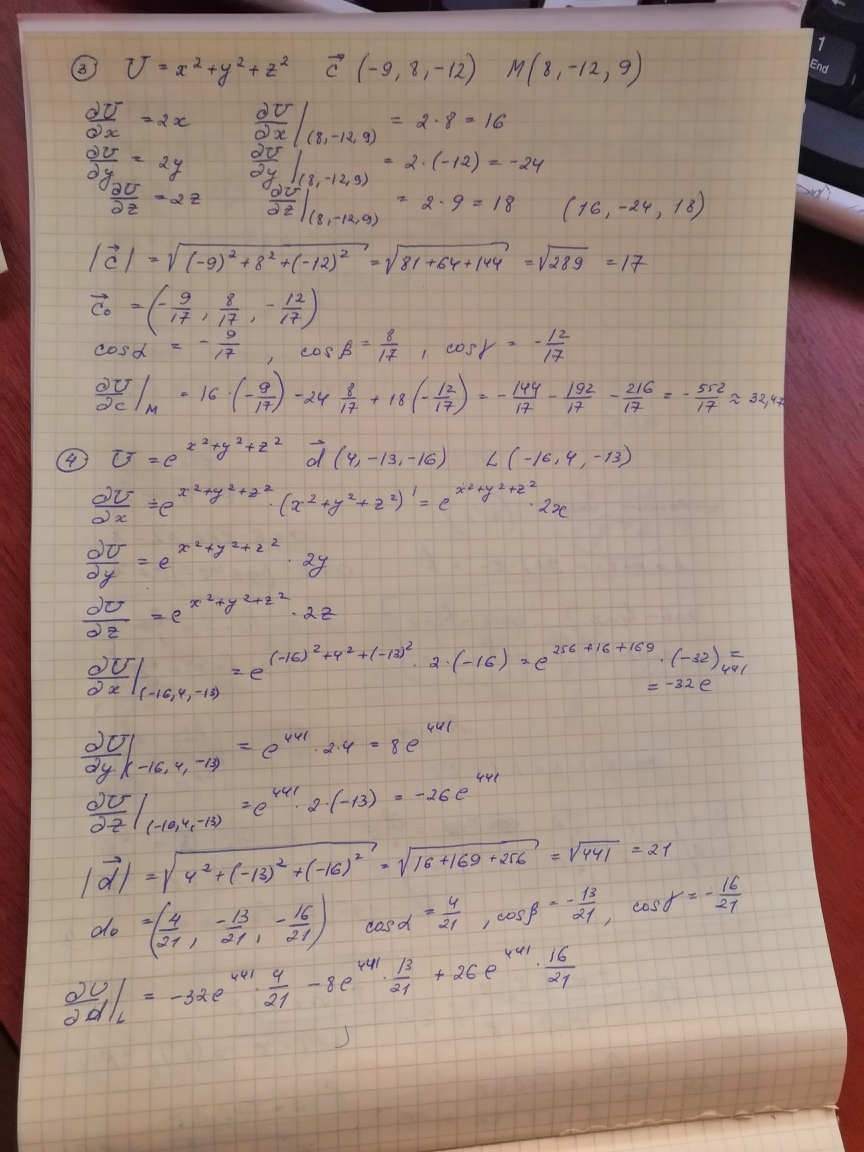 ③ U = x²+y²+z² c⃗ (-9, 8, -12) M(8, -12, 9)
∂U/∂x = 2x ∂U/∂x |(8,-12,9) = 2·8 = 16
∂U/∂y = 2y ∂U/∂y |(8,-12,9) = 2·(-12) = -24
∂U/∂z = 2z ∂U/∂z |(8,-12,9) = 2·9 = 18 (16, -24, 18)
|c⃗| = √((-9)²+8²+(-12)²) = √(81+64+144) = √289 = 17
c⃗₀ = (-9/17, 8/17, -12/17)
cosα = -9/17, cosβ = 8/17, cosγ = -12/17
∂U/∂c |M = 16·(-9/17) -24 8/17 + 18(-12/17) = -144/17 - 192/17 - 216/17 = -552/17 ≈ 32,47
④ U = e^(x²+y²+z²) d⃗ (4, -13, -16) L(-16, 4, -13)
∂U/∂x = e^(x²+y²+z²)·(x²+y²+z²)' = e^(x²+y²+z²)·2x
∂U/∂y = e^(x²+y²+z²)·2y
∂U/∂z = e^(x²+y²+z²)·2z
∂U/∂x |(-16,4,-13) = e^((-16)²+4²+(-13)²)·2·(-16) = e^(256+16+169)·(-32) =
= -32e^441
∂U/∂y |(-16,4,-13) = e^441·2·4 = 8e^441
∂U/∂z |(-16,4,-13) = e^441·2·(-13) = -26e^441
|d⃗| = √(4²+(-13)²+(-16)²) = √(16+169+256) = √441 = 21
d₀ = (4/21, -13/21, -16/21) cosα = 4/21, cosβ = -13/21, cosγ = -16/21
∂U/∂d |L = -32e^441·4/21 - 8e^441·13/21 + 26e^441·16/21
1
End